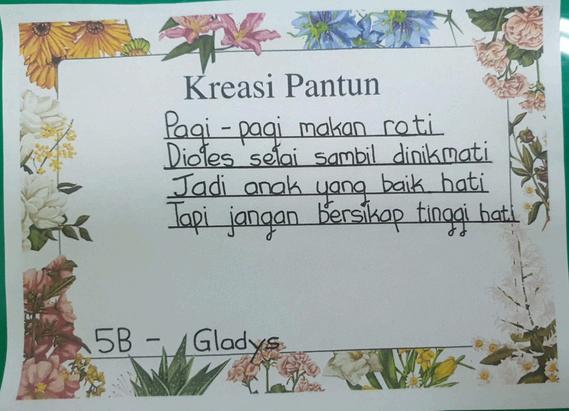 Kreasi Pantun
Pagi - pagi makan roti
Dioles selai sambil dinikmati
Jadi anak yang baik hati
Tapi jangan bersikap tinggi hati
5B - Gladys